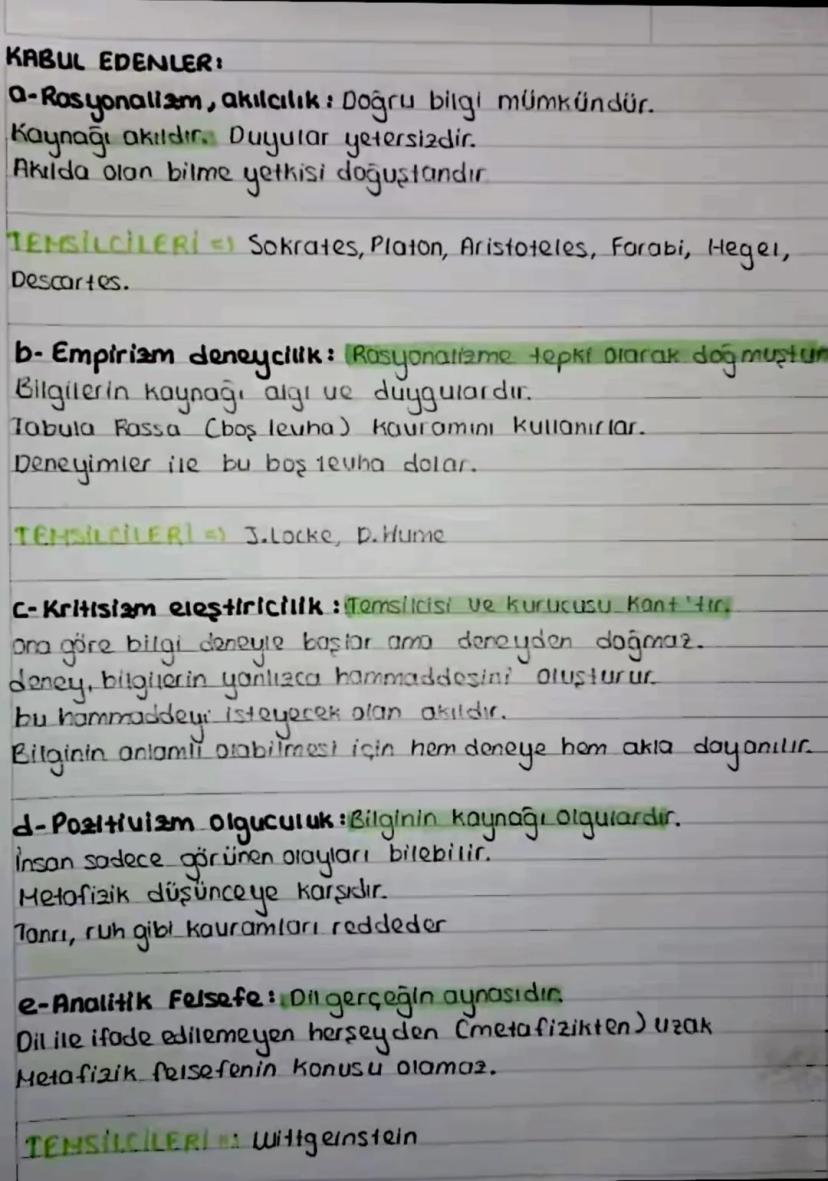 KABUL EDENLER:
a-Rasyonalizm, akılcılık: Doğru bilgi mümkündür.
Kaynağı akıldır. Duyular yetersizdir.
Akılda olan bilme yetkisi doğuştandır
TEMSİLCİLERİ => Sokrates, Platon, Aristoteles, Farabi, Hegel,
Descartes.
b- Empirizm deneycilik: Rasyonalizme tepki olarak doğmuştur
Bilgilerin kaynağı algı ve duygulardır.
Tabula Rassa (boş levha) kavramını kullanırlar.
Deneyimler ile bu boş levha dolar.
TEMSİLCİLERİ => J.Locke, D.Hume
c-Kritisizm eleştiricilik: Temsilcisi ve kurucusu Kant'tır.
ona göre bilgi deneyle başlar ama deneyden doğmaz.
deney, bilgilerin yanlızca hammaddesini oluşturur.
bu hammaddeyi isteyecek olan akıldır.
Bilginin anlamlı olabilmesi için hem deneye hem akla dayanılır.
d-Pozitivizm olguculuk: Bilginin kaynağı olgulardır.
İnsan sadece görünen olayları bilebilir.
Metafizik düşünceye karşıdır.
Tanrı, ruh gibi kavramları reddeder
e-Analitik Felsefe: Dil gerçeğin aynasıdır.
Dil ile ifade edilemeyen herşeyden (metafizikten) uzak
Metafizik felsefenin konusu olamaz.
TEMSİLCİLERİ => Wittgeinstein